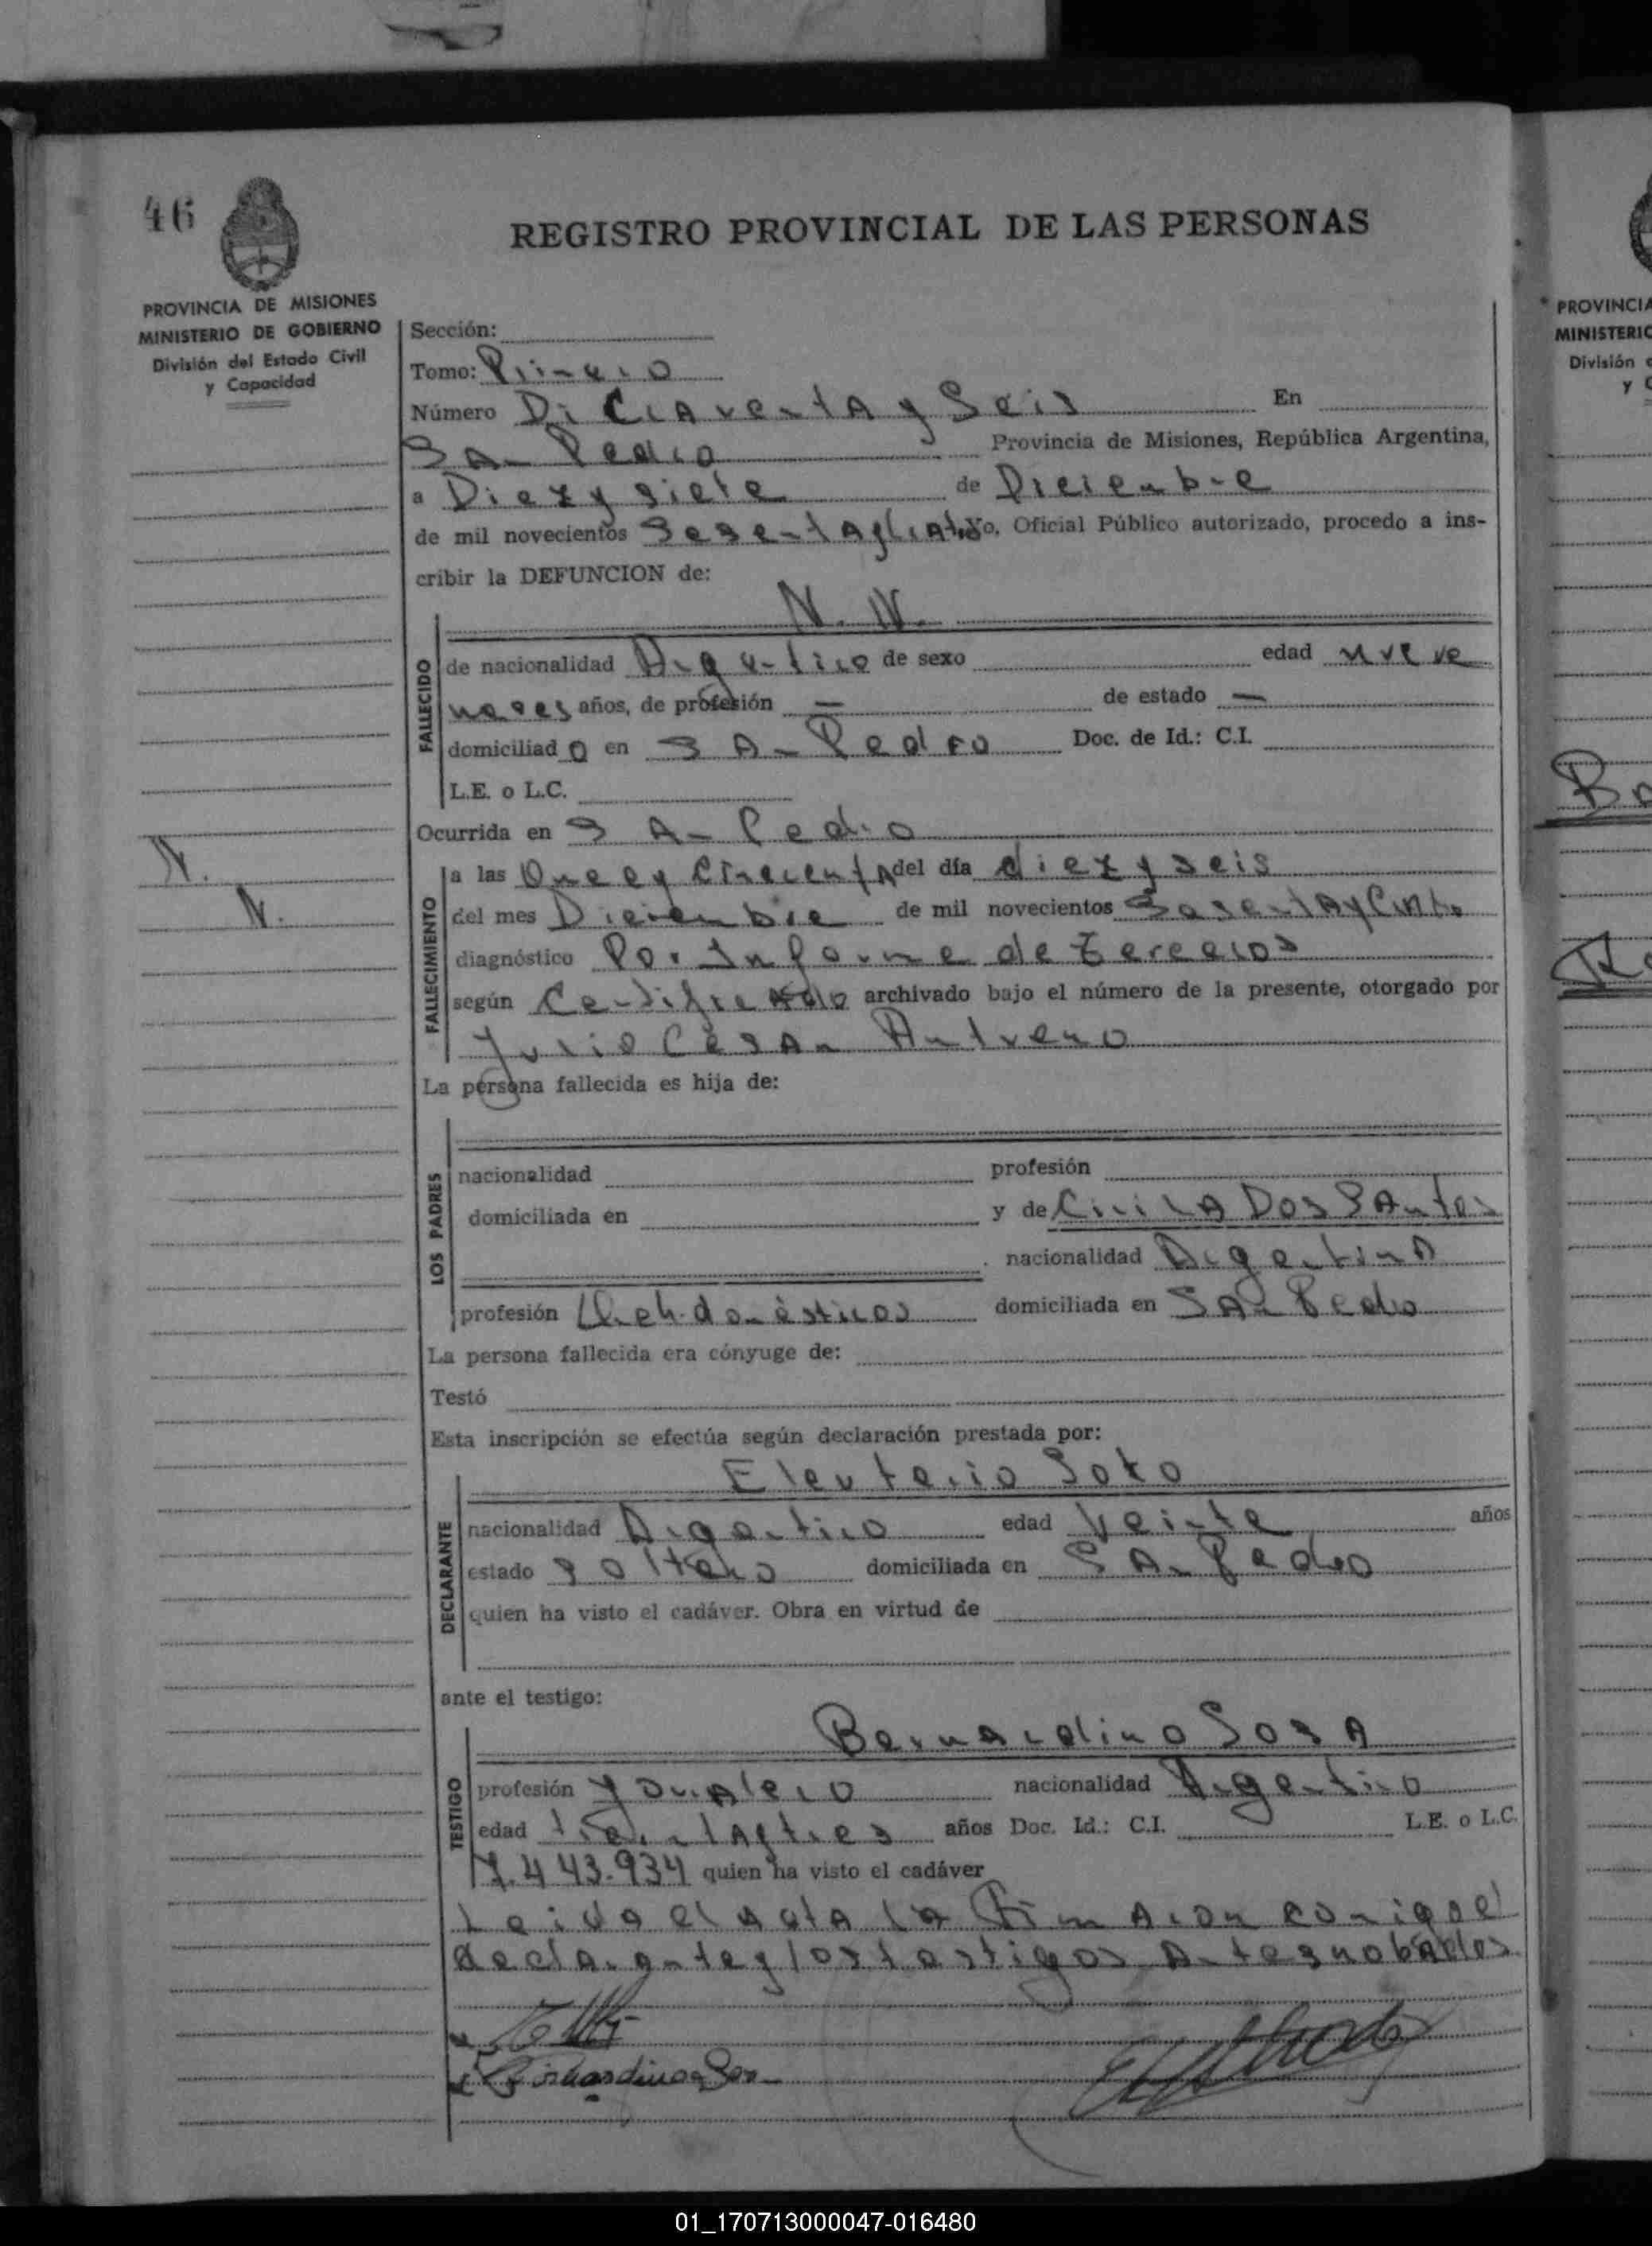 46
REGISTRO PROVINCIAL DE LAS PERSONAS
PROVINCIA DE MISIONES
MINISTERIO DE GOBIERNO
División del Estado Civil
y Capacidad
Sección:
Tomo: Primero
Número y Seis En
San Pedro Provincia de Misiones, República Argentina,
a Diez y siete de Diciembre
de mil novecientos Yo, Oficial Público autorizado, procedo a ins-
cribir la DEFUNCION de:
N. N.
FALLECIDO
de nacionalidad Argentino de sexo edad nueve
meses años, de profesión — de estado —
domiciliado en San Pedro Doc. de Id.: C.I.
L.E. o L.C.
Ocurrida en San Pedro
N.
N.
FALLECIMIENTO
a las Once y Cincuenta del día diez y seis
del mes Diciembre de mil novecientos Sesenta y Cinco
diagnóstico Por Informe de terceros
según Certificado archivado bajo el número de la presente, otorgado por
Julio César
La persona fallecida es hija de:
LOS PADRES
nacionalidad profesión
domiciliada en y de Dos Santos
nacionalidad Argentina
profesión domésticos domiciliada en San Pedro
La persona fallecida era cónyuge de:
Testó
Esta inscripción se efectúa según declaración prestada por:
Eleuterio Soto
DECLARANTE
nacionalidad Argentino edad Veinte años
estado soltero domiciliada en San Pedro
quien ha visto el cadáver. Obra en virtud de
ante el testigo:
Bernardino Sosa
TESTIGO
profesión Jornalero nacionalidad Argentino
edad treinta y tres años Doc. Id.: C.I. L.E. o L.C.
7.443.934 quien ha visto el cadáver
Leida el acta la conmigo el
declarante y los testigos
PROVINCIA
MINISTERIO
División
y
01_170713000047-016480